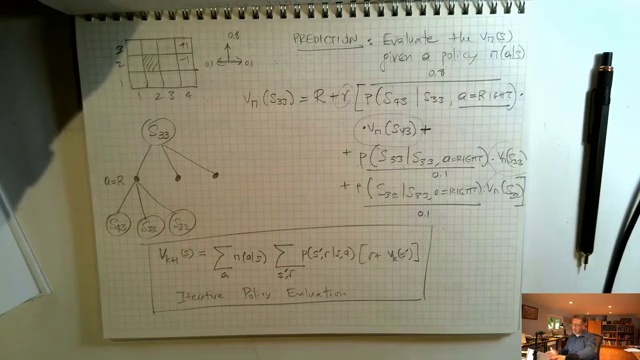 3
2
1
1 2 3 4
+1
-1
0.8
0.1 0.1
PREDICTION : Evaluate the Vπ(s)
given a policy π(a|s)
0.8
Vπ(S33) = R + γ [ p(S43 | S33, a=RIGHT) ·
· Vπ(S43) +
+ p(S33 | S33, a=RIGHT) · Vπ(S33)
0.1
+ p(S32 | S33, a=RIGHT) · Vπ(S32) ]
0.1
S33
a=R
S43 S33 S32
Vk+1(s) = Σa π(a|s) Σs',r p(s',r|s,a) [r + Vk(s')]
Iterative Policy Evaluation